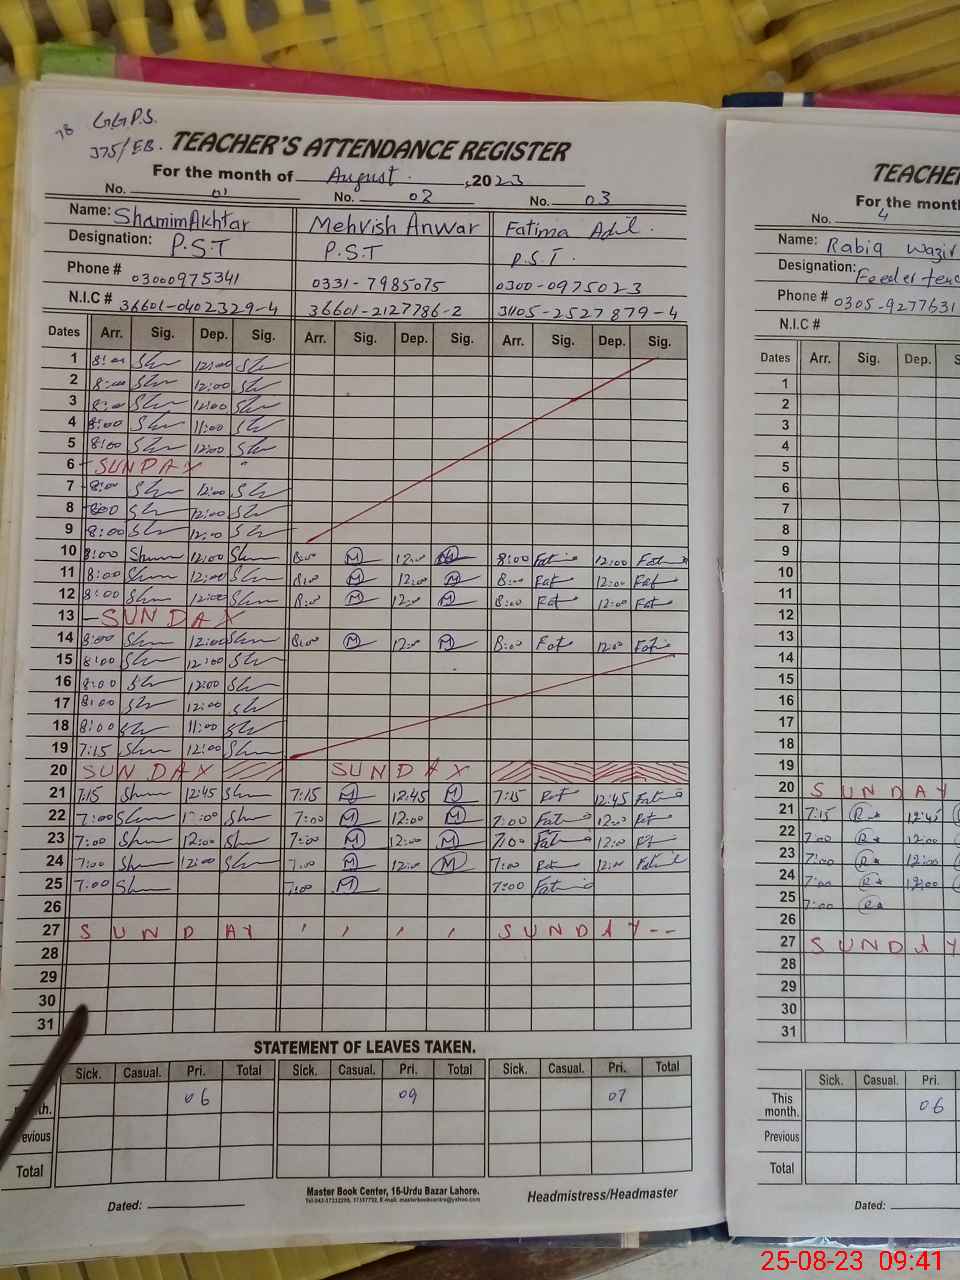 78 GGPS.
375/EB.
TEACHER'S ATTENDANCE REGISTER
For the month of August. ,2023
No. 01 No. 02 No. 03
Name: Shamim Akhtar Mehvish Anwar Fatima Adil.
Designation: P.S.T P.S.T P.S.T.
Phone # 03000975341 0331-7985075 0300-0975023
N.I.C # 36601-0402329-4 36601-2127786-2 31105-2527879-4
Dates Arr. Sig. Dep. Sig. Arr. Sig. Dep. Sig. Arr. Sig. Dep. Sig.
1 8:00 Shm 12:00 Sh
2 8:00 Shm 12:00 Sh
3 8:00 Shm 12:00 Shm
4 8:00 Shm 11:00 Sh
5 8:00 Shm 12:00 Sh
6 SUNDAY
7 8:00 Shm 12:00 Sh
8 8:00 Sh 12:00 Sh
9 8:00 Sh 12:00 Sh
10 8:00 Shm 12:00 Shm 8:00 M 12:00 M 8:00 Fatima 12:00 Fatima
11 8:00 Shm 12:00 Shm 8:00 M 12:00 M 8:00 Fat 12:00 Fat
12 8:00 Shm 12:00 Shm 8:00 M 12:00 M 8:00 Fat 12:00 Fat
13 SUNDAY
14 8:00 Shm 12:00 Shm 8:00 M 12:00 M 8:00 Fat 12:00 Fatima
15 8:00 Shm 12:00 Sh
16 8:00 Sh 12:00 Sh
17 8:00 Sh 12:00 Sh
18 8:00 Sh 11:00 Sh
19 7:15 Shm 12:00 Shm
20 SUNDAY SUNDAY
21 7:15 Shm 12:45 Shm 7:15 M 12:45 M 7:15 Fat 12:45 Fatima
22 7:00 Shm Shm 7:00 M 12:00 M 7:00 Fatima 12:00 Fat
23 7:00 Shm 12:00 Shm 7:00 M 12:00 M 7:00 Fatima 12:00 Fat
24 7:00 Shm 12:00 Shm 7:00 M 12:00 M 7:00 Fat 12:00 Fatima
25 7:00 Shm 7:00 M 7:00 Fatima
26
27 SUNDAY , , , , SUNDAY--
28
29
30
31
STATEMENT OF LEAVES TAKEN.
Sick. Casual. Pri. Total Sick. Casual. Pri. Total Sick. Casual. Pri. Total
06 09 07
Total
Dated:
Master Book Center, 16-Urdu Bazar Lahore.
Headmistress/Headmaster
For the
No. 4
Name: Rabia Wazir
Designation: Feeder
Phone # 0305-9277631
N.I.C #
Dates Arr. Sig. Dep.
1
2
3
4
5
6
7
8
9
10
11
12
13
14
15
16
17
18
19
20 SUNDAY
21 7:15 R 12:45
22 7:00 R 12:00
23 7:00 R 12:00
24 7:00 R 12:00
25 7:00 R
26
27 SUNDAY
28
29
30
31
Sick. Casual. Pri.
This month. 06
Previous
Total
Dated:
25-08-23 09:41